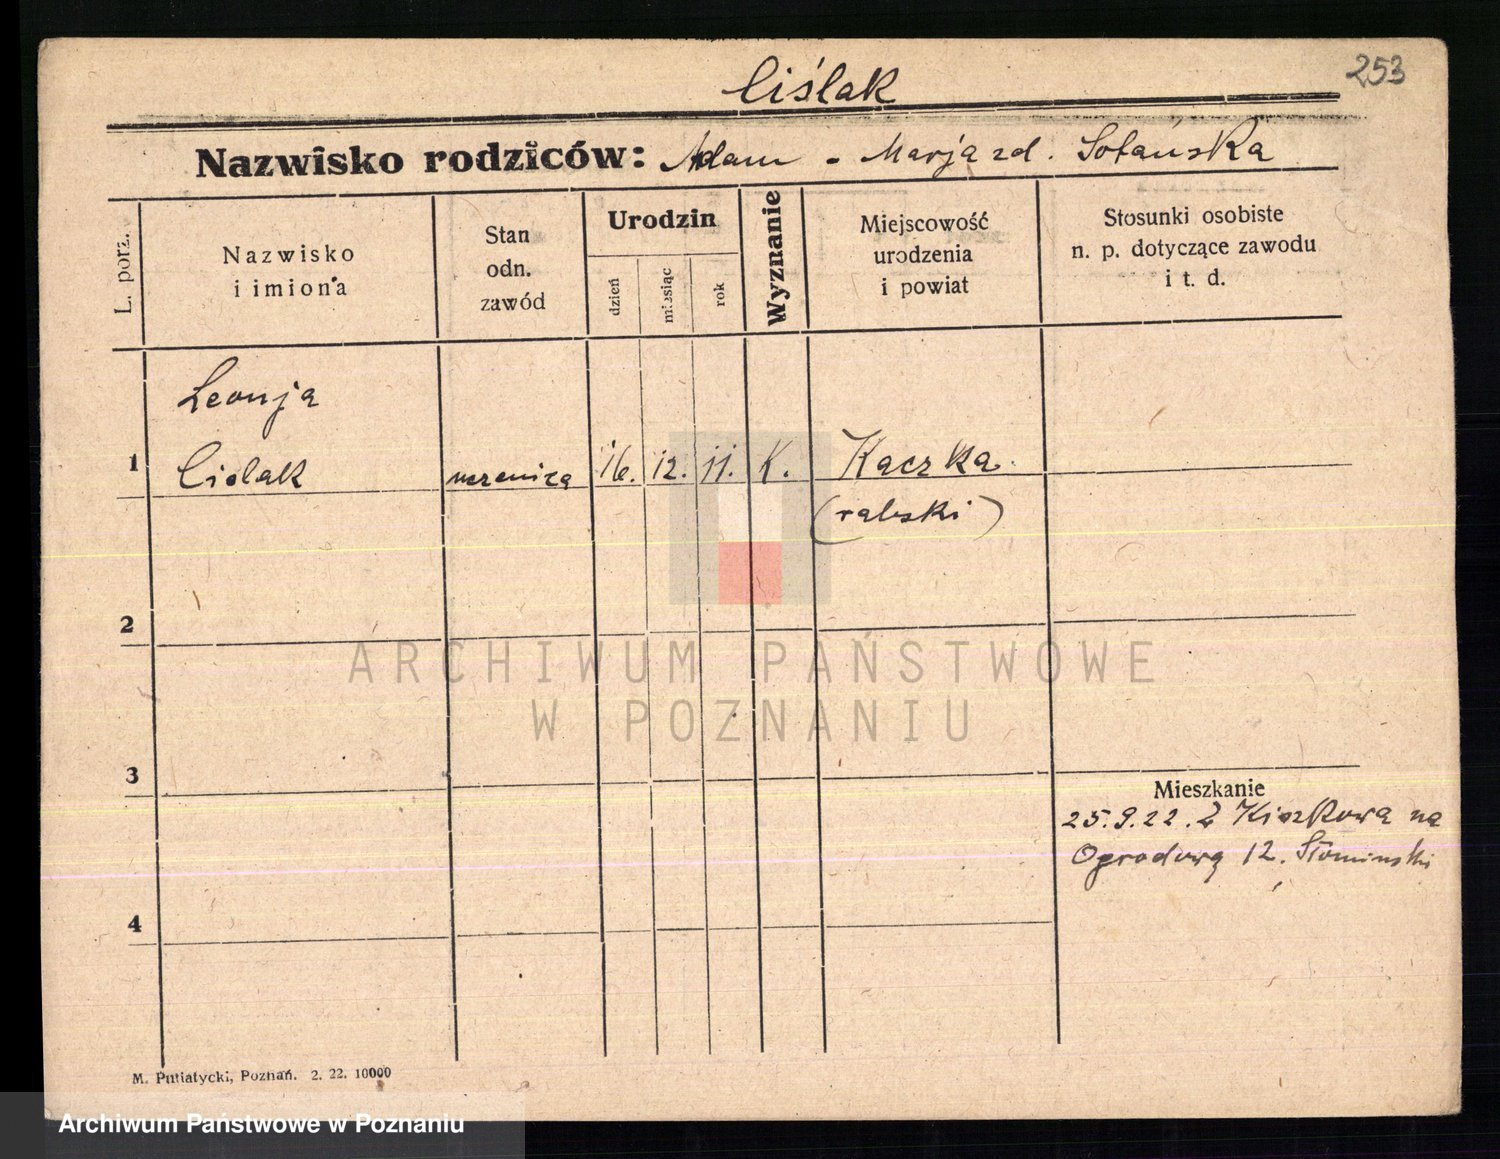 253
Ciślak
Nazwisko rodziców: Adam - Marja zd. Sotańska
L. porz.
Nazwisko
i imiona
Stan
odn.
zawód
Urodzin
dzień
miesiąc
rok
Wyznanie
Miejscowość
urodzenia
i powiat
Stosunki osobiste
n. p. dotyczące zawodu
i t. d.
1
Leonja
Cislak
uczenica
16. 12. 11. K. Kaczka
2
3
4
Mieszkanie
25.9.22. Z Kiszkowa na
Ogrodową 12. Słominski
M. Putiatycki, Poznań. 2. 22. 10000
ARCHIWUM PAŃSTWOWE
W POZNANIU
Archiwum Państwowe w Poznaniu